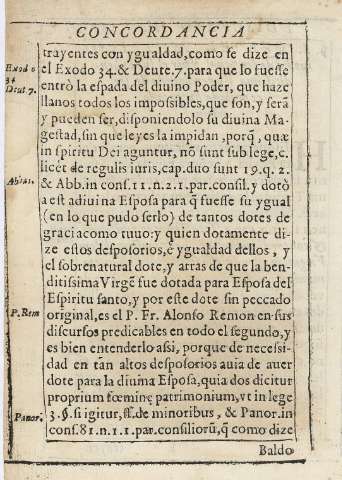 CONCORDANCIA
trayentes con ygualdad, como se dize en
Exod o
34
Deut 7.
el Exodo 34. & Deute. 7. para que lo fuesse
entrò la espada del diuino Poder, que haze
llanos todos los impossibles, que son, y serã
y pueden ser, disponiendolo su diuina Ma-
gestad, sin que leyes la impidan, porq̃, quæ
in spiritu Dei aguntur, nõ sunt sub lege, c.
licèt de regulis iuris, cap. duo sunt 19. q. 2.
Abbas.
& Abb. in cons. 11. n. 21. par. consil. y dotò
a est adiuina Esposa para q̃ fuesse su ygual
(en lo que pudo serlo) de tantos dotes de
graci acomo tuuo: y quien dotamente di-
ze estos desposorios, è ygualdad dellos, y
el sobrenatural dote, y arras de que la ben-
ditissima Virgẽ fue dotada para Esposa del
Espiritu santo, y por este dote sin peccado
P. Rem
original, es el P. Fr. Alonso Remon en sus
discursos predicables en todo el segundo, y
es bien entenderlo assi, porque de necessi-
dad en tãn altos desposorios auia de auer
dote para la diuina Esposa, quia dos dicitur
proprium fœminę patrimonium, vt in lege
3. §. si igitur, ff. de minoribus, & Panor. in
Panor.
cons. 81. n. 11. par. consiliorũ, q̃ como dize
Baldo